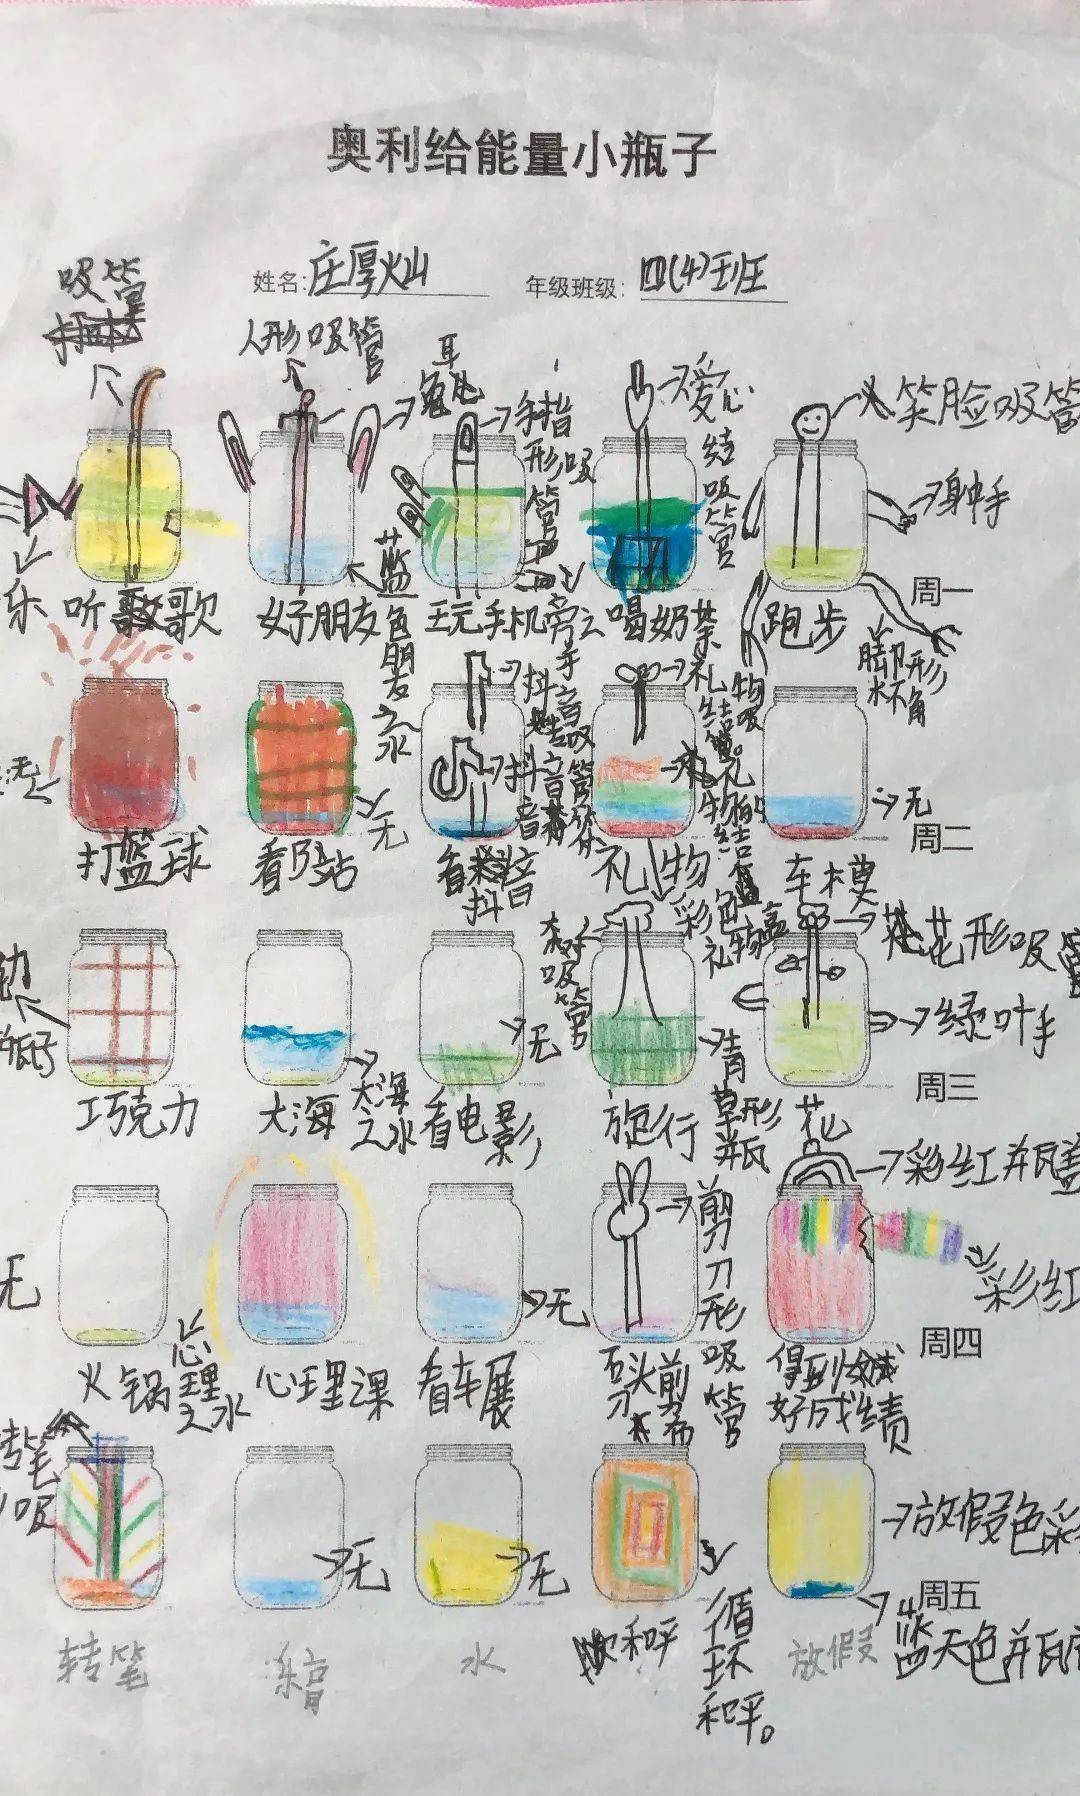 奥利给能量小瓶子
姓名: 庄厚灿 年级班级: 四(4)班
吸管
人形吸管
耳
手指
形吸
管
爱心
结
吸
管
笑脸吸管
身中手
乐
听歌
好朋友
蓝
色
朋
友
之
水
玩手机
喝奶茶
跑步
周一
脚形
杯角
无
打篮球
看B站
无
抖
音
吸
管
抖
音
看抖音
礼物
礼
物
吸
管
彩色
礼物盒
车模
无
周二
巧克力
大海
大海
之水
看电影
无
吸
管
旅行
青
草形
瓶
花
花形吸管
绿叶手
周三
无
火锅
心
理
之水
心理课
看车展
无
石头剪
刀布
剪
刀
刀
形
吸
管
得到
好成绩
彩红瓶盖
彩红
周四
转笔
吸
转笔
无
无
水
和平
循
环
和平。
放假
放假色彩
蓝天色瓶
周五